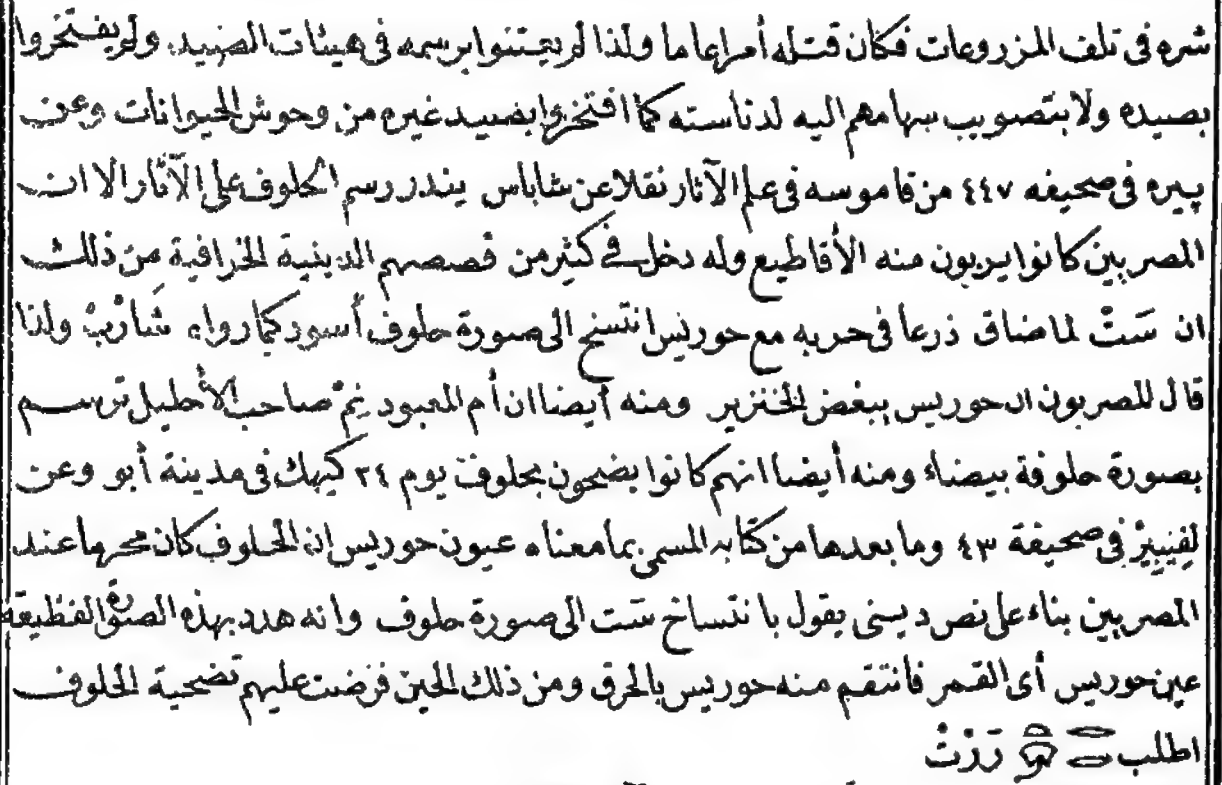 شره فى تلف المزروعات فكان قتله أمراعاما ولذا لم يعتنوا برسمه فى هيئات الصيد ولم يفتخروا
بصيده ولا بتصويب سهامهم اليه لدناسته كما افتخروا بصيد غيره من وحوش الحيوانات وعن
پيره فى صحيفه ٤٤٧ من قاموسه فى علم الآثار نقلا عن شاباس يندر رسم الحلوف على الآثار الا ان
المصريين كانوا يربون منه الأقاطيع وله دخل فى كثير من قصصهم الدينية الخرافية من ذلك
ان سَتْ لما ضاق ذرعا فى حربه مع حوريس انتسخ الى صورة حلوف أسود كما رواه شَارْپ ولذا
قال المصريون ان حوريس يبغض الخنزير ومنه أيضا ان أم المعبود خِمْ صاحب الأحليل ترسم
بصورة حلوفة بيضاء ومنه أيضا انهم كانوا يضحون بحلوف يوم ٢٤ كيهك فى مدينة أبو وعن
لِفِيبِيْرْ فى صحيفة ٤٣ وما بعدها من كتابه المسمى بما معناه عيون حوريس ان الحلوف كان محرما عند
المصريين بناء على نص دينى يقول بانتساخ ست الى صورة حلوف وانه هدد بهذه الصورة الفظيعة
عين حوريس أى القمر فانتقم منه حوريس بالحرق ومن ذلك الحين فرضت عليهم تضحية الحلوف
اطلب رَرْتْ